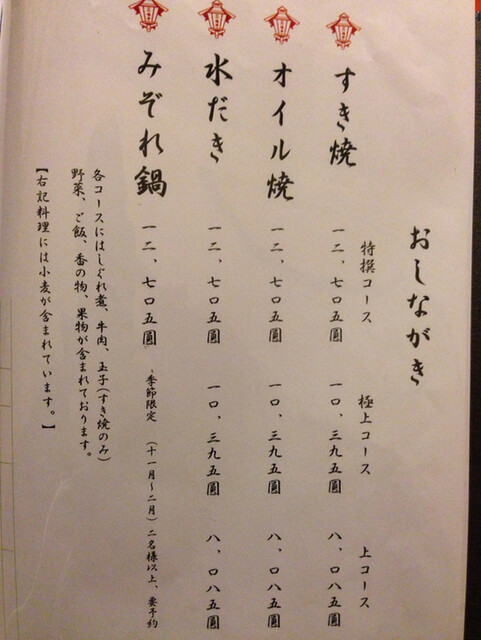 おしながき
特撰コース 極上コース 上コース
すき焼 一二、七〇五圓 一〇、三九五圓 八、〇八五圓
オイル焼 一二、七〇五圓 一〇、三九五圓 八、〇八五圓
水だき 一二、七〇五圓 一〇、三九五圓 八、〇八五圓
みぞれ鍋 一二、七〇五圓 ～季節限定 (十一月～二月)二名様以上、要予約
各コースにはしぐれ煮、牛肉、玉子(すき焼のみ)
野菜、ご飯、香の物、果物が含まれております。
【右記料理には小麦が含まれています。】